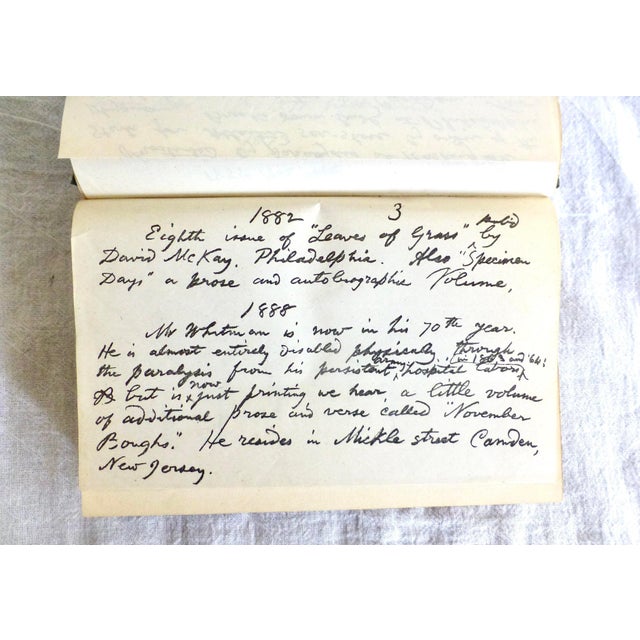 1882 3
Eighth issue of "Leaves of Grass" pub'd by
David McKay, Philadelphia. Also "Specimen
Days" a prose and autobiographic Volume,
1888
Mr Whitman is now in his 70th year.
He is almost entirely disabled physically through
the paralysis from his persistent army hospital labors (in 1863 and '64)
but is now just printing we hear, a little volume
of additional prose and verse called "November
Boughs." He resides in Mickle street Camden,
New Jersey.